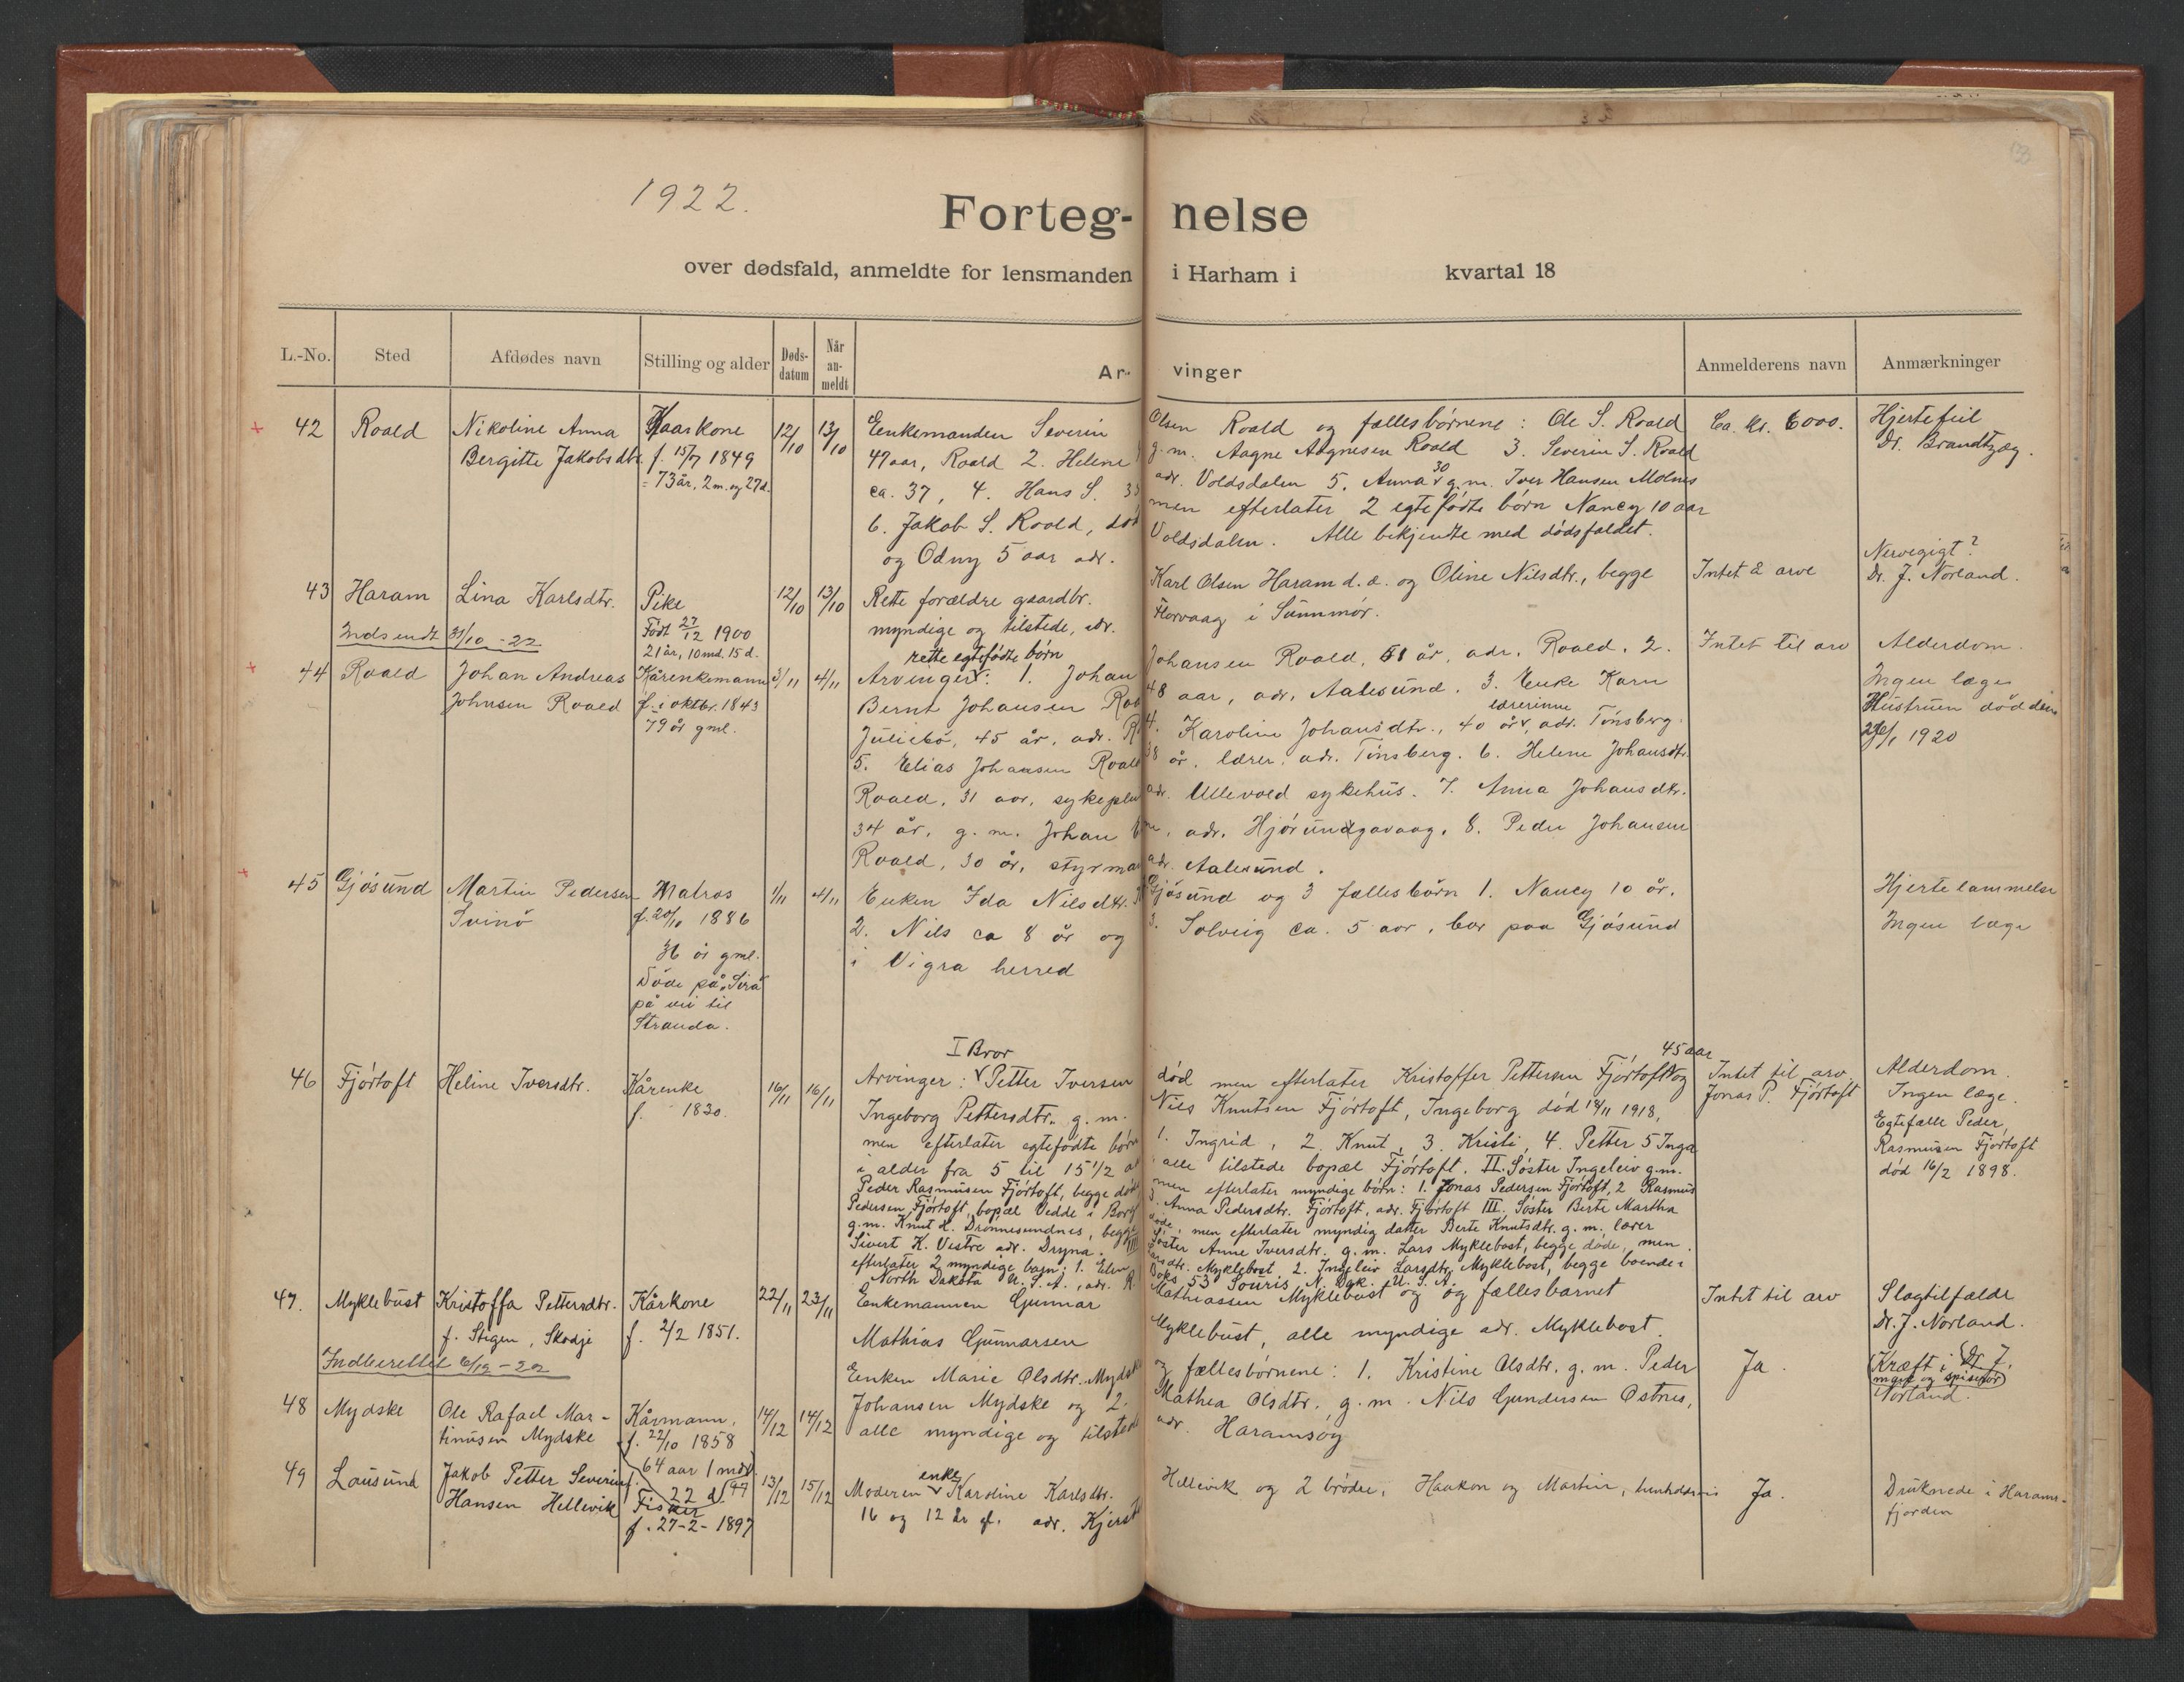 1922.
Forteg- nelse
over dødsfald, anmeldte for lensmanden i Harham i kvartal 18
L.-No. Sted Afdødes navn Stilling og alder Døds-datum Når an-meldt Ar- vinger Anmelderens navn Anmærkninger
42 Roald Nikoline Anna Kaarkone 12/10 13/10 Enkemanden Severin Olsen Roald og fællesbørnene: Ole S. Roald Ca. kr. 6000. Hjertefeil
Bergitte Jakobsdtr. f. 15/7 1849 47 aar, Roald 2. Helene g.m. Aagne Aagnesen Roald 3. Severin S. Roald Dr. Brandtzæg.
= 73 år, 2 m. og 27 d. ca. 37, 4. Hans S. adr. Voldsdalen 5. Anna 30 g.m. Iver Hansen Molnes
6. Jakob S. Roald, død men efterlater 2 egtefødte børn Nancy 10 aar
og Odny 5 aar adr. Voldsdalen. Alle bekjendte med dødsfaldet.
43 Haram Lina Karlsdtr. Pike 12/10 13/10 Rette forældre gaardbr. Karl Olsen Haram d. æ. og Oline Nilsdtr., begge Intet å arve Nervegigt?
Født 27/12 1900 myndige og tilstede, adr. Flervaag i Sünnmør. Dr. J. Norland.
Indsendt 31/10 - 22 21 år, 10 md. 15 d.
rette egtefødte børn
44 Roald Johan Andreas Kårenkemann 3/11 4/11 Arvinger: 1. Johan Johansen Roald, 51 år, adr. Roald. 2. Intet til arv Alderdom.
Johnsen Roald f. i oktbr. 1843 Bernt Johansen 48 aar, adr. Aalesund. 3. Enke Karn Ingen læge
79 år gml. Juliebø, 45 år, adr. 4. Karoline Johansdtr., 40 år lærerinne, adr. Tønsberg. Hustruen død den
5. Elias Johansen Roald 38 år, lærer, adr. Tønsberg. 6. Helene Johansdtr. 1920
Roald, 31 aar, sykeplei adr. Ullevold sykehus. 7. Anna Johansdtr.
34 år, g.m. Johan adr. Hjørundgavaag. 8. Peder Johansen
Roald, 30 år, styrma adr. Aalesund.
45 Gjøsund Martin Pedersen Matros 1/11 4/11 Enken Ida Nilsdtr. Gjøsund og 3 fællesbørn 1. Nancy 10 år. Hjertelammelse
Svinø f. 20/10 1886 2. Nils ca 8 år og 3. Solveig ca. 5 aar, bor paa Gjøsund Ingen læge
36 år gml. i Vigra herred
Døde på "Sirå"
på vei til
Stranda.
I Bror 45 aar
46 Fjørtoft Heline Iversdtr. Kårenke 16/11 16/11 Arvinger: Petter Iversen død men efterlater Kristoffer Pettersen Fjørtoft og Intet til arv. Alderdom.
f. 1830. Ingeborg Pettersdtr. g.m. Nils Knutsen Fjørtoft, Ingeborg død 18/11 1918, Jonas P. Fjørtoft Ingen læge.
men efterlater egtefødte børn 1. Ingrid, 2. Knut, 3. Kristi, 4. Petter 5 Inga Egtefælle Peder
i alder fra 5 til 15 1/2 alle tilstede bopæl Fjørtoft. II. Søster Ingeleiv g.m. Rasmusen Fjørtoft
Peder Rasmusen Fjørtoft, begge døde men efterlater myndige børn: 1. Jonas Pedersen Fjørtoft, 2 Rasmus død 16/2 1898.
Pedersen Fjørtoft, bopæl Vedde i Borg 3. Anna Pedersdtr. Fjørtoft, adr. Fjørtoft III. Søster Berte Martha
g.m. Knut H. Dronnesundnes, begge døde, men efterlater myndig datter Berte Knutsdtr. g.m. lærer
Sivert K. Vestre adr. Dryna. Søster Anne Iversdtr. g.m. Lars Myklebost, begge døde, men
efterlater 2 myndige barn: 1. Elen Larsdtr. Myklebost 2. Ingeleiv Larsdtr. Myklebost, begge boende i
North Dakota U.S.A., adr. R. Boks 53 Souris N. Dak. U.S.A.
47. Myklebust Kristoffa Pettersdtr. Kårkone 22/11 23/11 Enkemannen Gunnar Mathiassen Myklebust og fællesbarnet Intet til arv Slagtilfælde
f. Stigen, Skodje f. 2/2 1851. Mathias Gunnarsen Myklebust, alle myndige adr. Myklebost. Dr. J. Norland.
Indberettet 6/12 - 22
48 Mydske Ole Rafael Mar- Kårmann, 14/12 14/12 Enken Marie Olsdtr. Mydske og fællesbørnene: 1. Kristine Olsdtr. g.m. Peder Ja. Kræft i
tinusen Mydske f. 22/10 1858 Johansen Mydske og 2. Mathea Olsdtr. g.m. Nils Gundersen Østnes, mave og spiserør Dr J. Norland.
64 aar 1 md 22 d alle myndige og tilstede adr. Haramsøy
49 Lausund Jakob Petter Severin Fisker 13/12 15/12 Moderen enke Karoline Karlsdtr. Hellevik og 2 brødre, Haakon og Martin, henholdsvis Ja. Druknede i Harams-
Hansen Hellevik f. 27-2-1897 16 og 12 år gl. adr. Kjerst fjorden